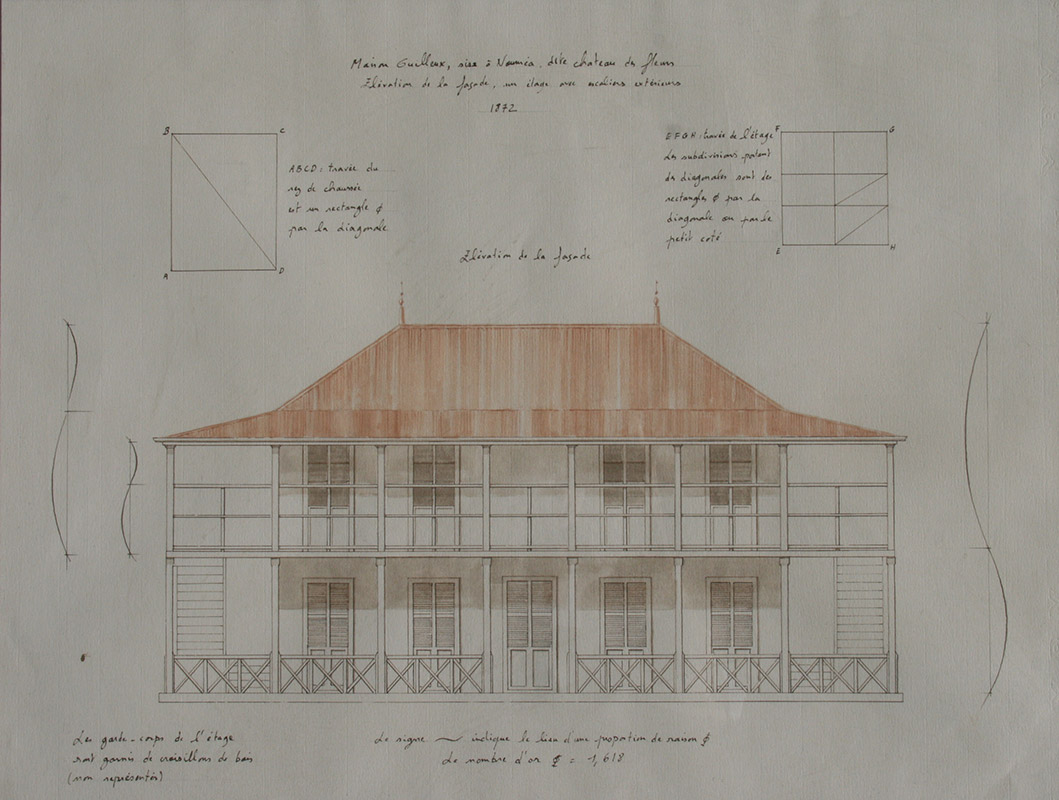 Maison Guilleux, sise à Nouméa, dite chateau des fleurs
Elévation de la façade, un étage avec escaliers extérieurs
1872
B
C
A
D
ABCD: travée du
rez de chaussée
est un rectangle ϕ
par la diagonale
EFGH: travée de l'étage
Les subdivisions portant
des diagonales sont des
rectangles ϕ par la
diagonale ou par le
petit coté
F
G
E
H
Elévation de la façade
Les garde-corps de l'étage
sont garnis de croisillons de bois
(non représentés)
Le signe ~ indique le lieu d'une propotion de raison ϕ
Le nombre d'or ϕ = 1,618